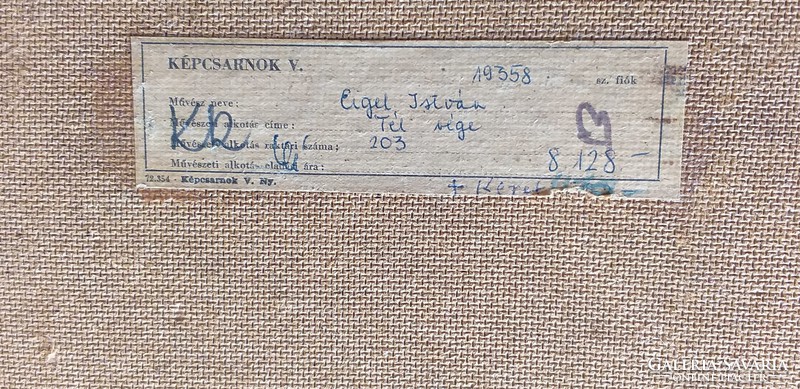 KÉPCSARNOK V.
19358 sz. fiók
Művész neve: Eigel István
Művészeti alkotás címe: Tél vége
Művészeti alkotás raktári száma: 203
Művészeti alkotás eladási ára: 8 128 –
72.354 - Képcsarnok V. Ny.
+ Keret
GALERIA SAVARIA